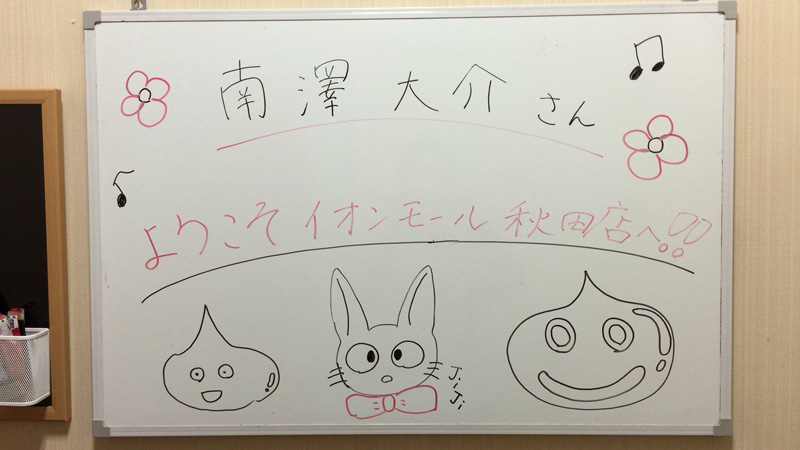 南澤 大介 さん
ようこそ イオンモール 秋田店へ!!
ジジ